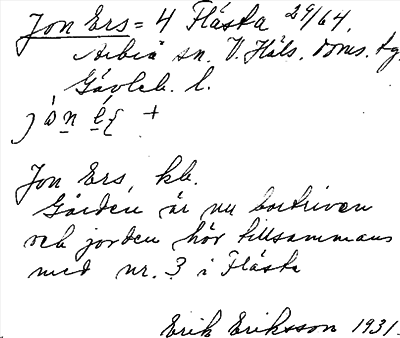 Jon Ers = 4 Flästa 29/64.
Arbrå sn. V. Häls. doms. tg.
Gävleb. l.
+
Jon Ers, kb.
Gården är nu bortriven
och jorden hör tillsammans
med nr. 3 i Flästa
Erik Eriksson 1931.